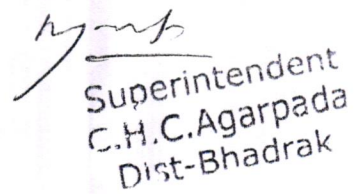 Superintendent
C.H.C.Agarpada
Dist-Bhadrak